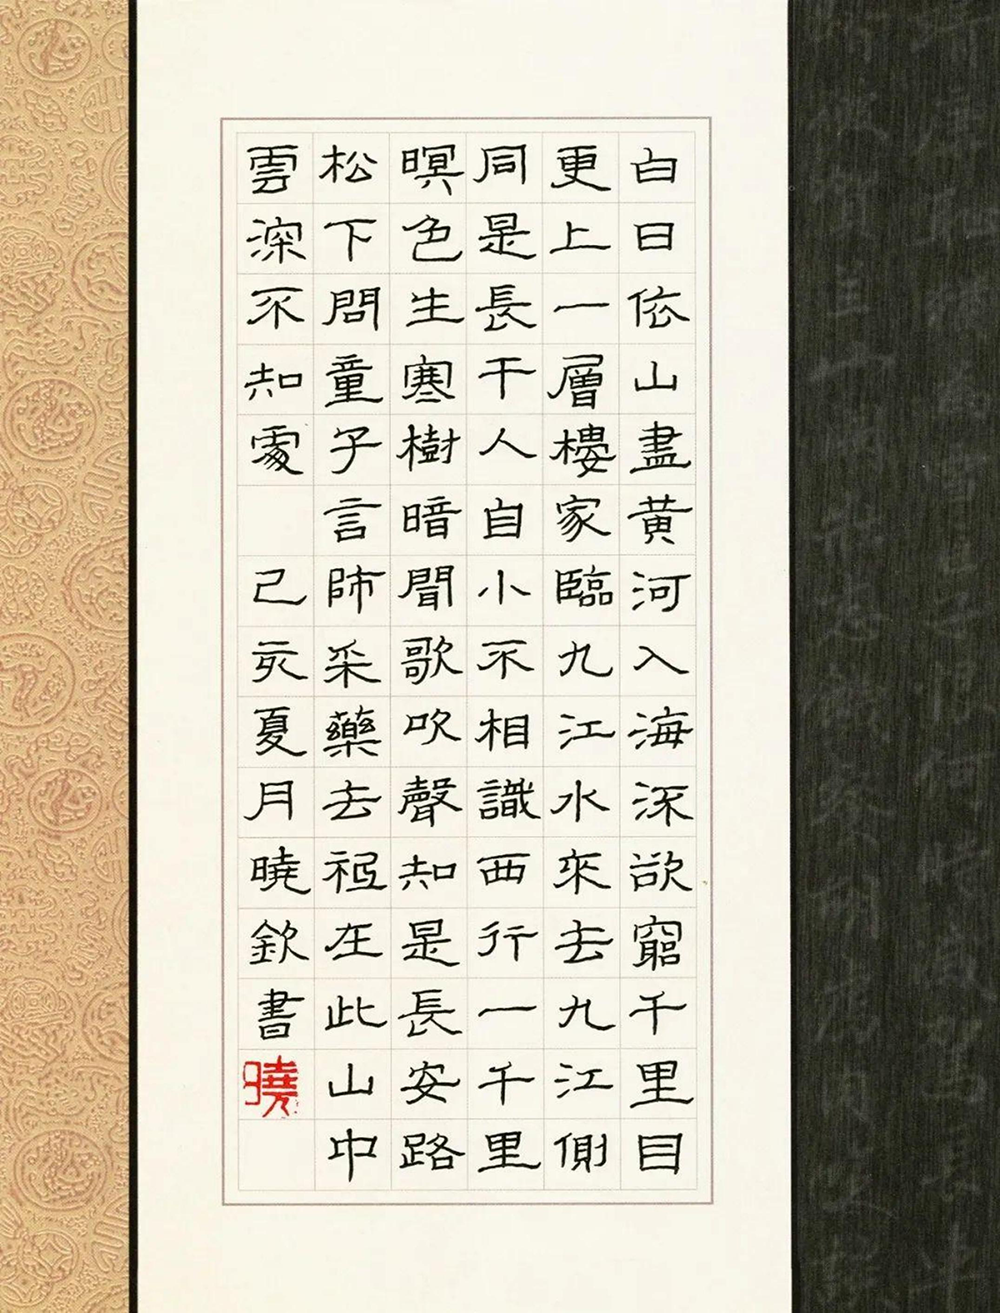 白日依山盡黄河入海深欲窮千里目
更上一層樓家臨九江水來去九江側
同是長干人自小不相識西行一千里
暝色生寒樹暗聞歌吹聲知是長安路
松下問童子言師采藥去祗在此山中
雲深不知處
己亥夏月曉欽書
曉